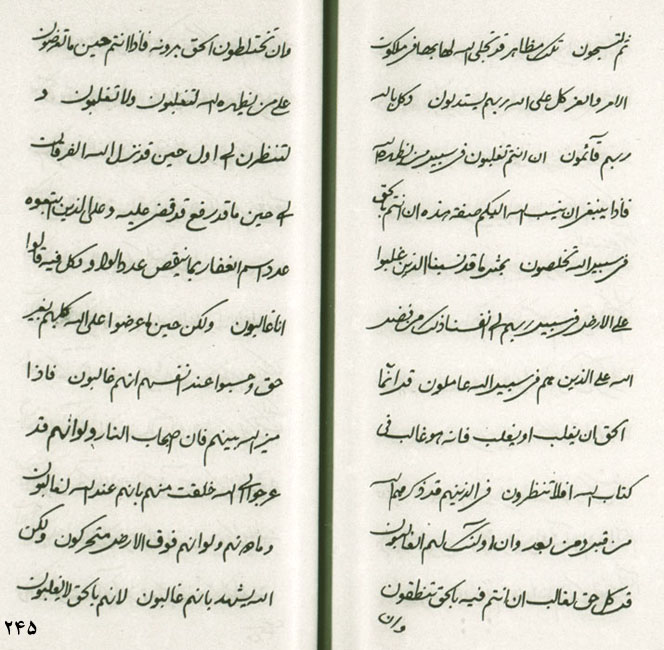 ثم لتسجدون تلك مظاهر قد تجلى الله لها بها في ملكوت
الامر والخلق كل على الله ربهم يستدلون وكل بالله
ربهم قائمون ان انتم تغلبون في سبيل من يظهره الله
فاذا ينبغي ان ينسب الله اليكم صفة هذه ان انتم بالحق
في سبيل الله تخلصون بمثل ما قد نسبنا الذين غلبوا
على الارض في سبيل ربهم الى انفسنا ذلك من فضل
الله على الذين هم في سبيل الله عاملون قد انما
الحق ان يغلب او يغلب فانه هو غالب في
كتاب الله افلا تنظرون في الذينهم قد ذكرهم الله
من قبل ومن بعد وان اولئك لهم الغالبون
قد كل حق لغالب ان انتم فيه بالحق تنطقون
وان
وان تختلطون الحق بدونه فاذا انتم حين ما تعرضون
على من يظهره الله لتغلبون ولا تغلبون و
لتنظرن الى اول حين قد نزل الله الفرقان
الى حين ما قد رفع قد قضى عليه وعلى الذين اتبعوه
عدد اسم الغفار بما ينقص عدد الواو وكل فيه قالوا
انا غالبون ولكن حين ما عرضوا على الله كلهم بغير
حق وحسبوا عند انفسهم انهم غالبون فاذا
ميز الله بينهم فان اصحاب النار ولو انهم قد
عرجوا الى الله خلقت منهم بانهم عند الله لغالبون
وما هم ولو انهم فوق الارض متحركون ولكن
الله يشهد بانهم غالبون لانهم بالحق لا يغلبون
۲۴۵